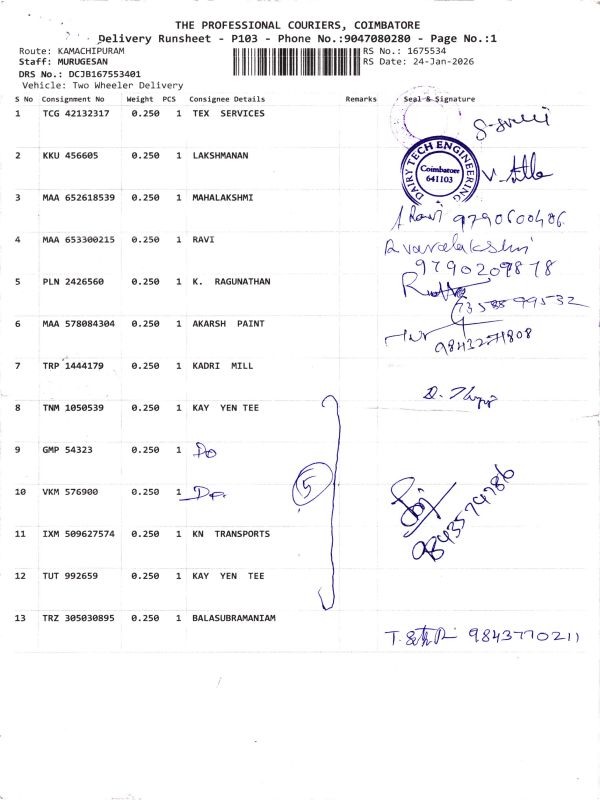 THE PROFESSIONAL COURIERS, COIMBATORE
Delivery Runsheet - P103 - Phone No.:9047080280 - Page No.:1
Route: KAMACHIPURAM RS No.: 1675534
Staff: MURUGESAN RS Date: 24-Jan-2026
DRS No.: DCJB167553401
Vehicle: Two Wheeler Delivery
S No Consignment No Weight PCS Consignee Details Remarks Seal & Signature
1 TCG 42132317 0.250 1 TEX SERVICES
2 KKU 456605 0.250 1 LAKSHMANAN
DAIRY TECH ENGINEERING
Coimbatore
641103
3 MAA 652618539 0.250 1 MAHALAKSHMI
Ravi 9790600486
4 MAA 653300215 0.250 1 RAVI
R varalakshmi
9790209878
5 PLN 2426560 0.250 1 K. RAGUNATHAN
6 MAA 578084304 0.250 1 AKARSH PAINT
7 TRP 1444179 0.250 1 KADRI MILL
8 TNM 1050539 0.250 1 KAY YEN TEE
9 GMP 54323 0.250 1 Do
10 VKM 576900 0.250 1 Do
5
9843574786
11 IXM 509627574 0.250 1 KN TRANSPORTS
12 TUT 992659 0.250 1 KAY YEN TEE
13 TRZ 305030895 0.250 1 BALASUBRAMANIAM
9843770211